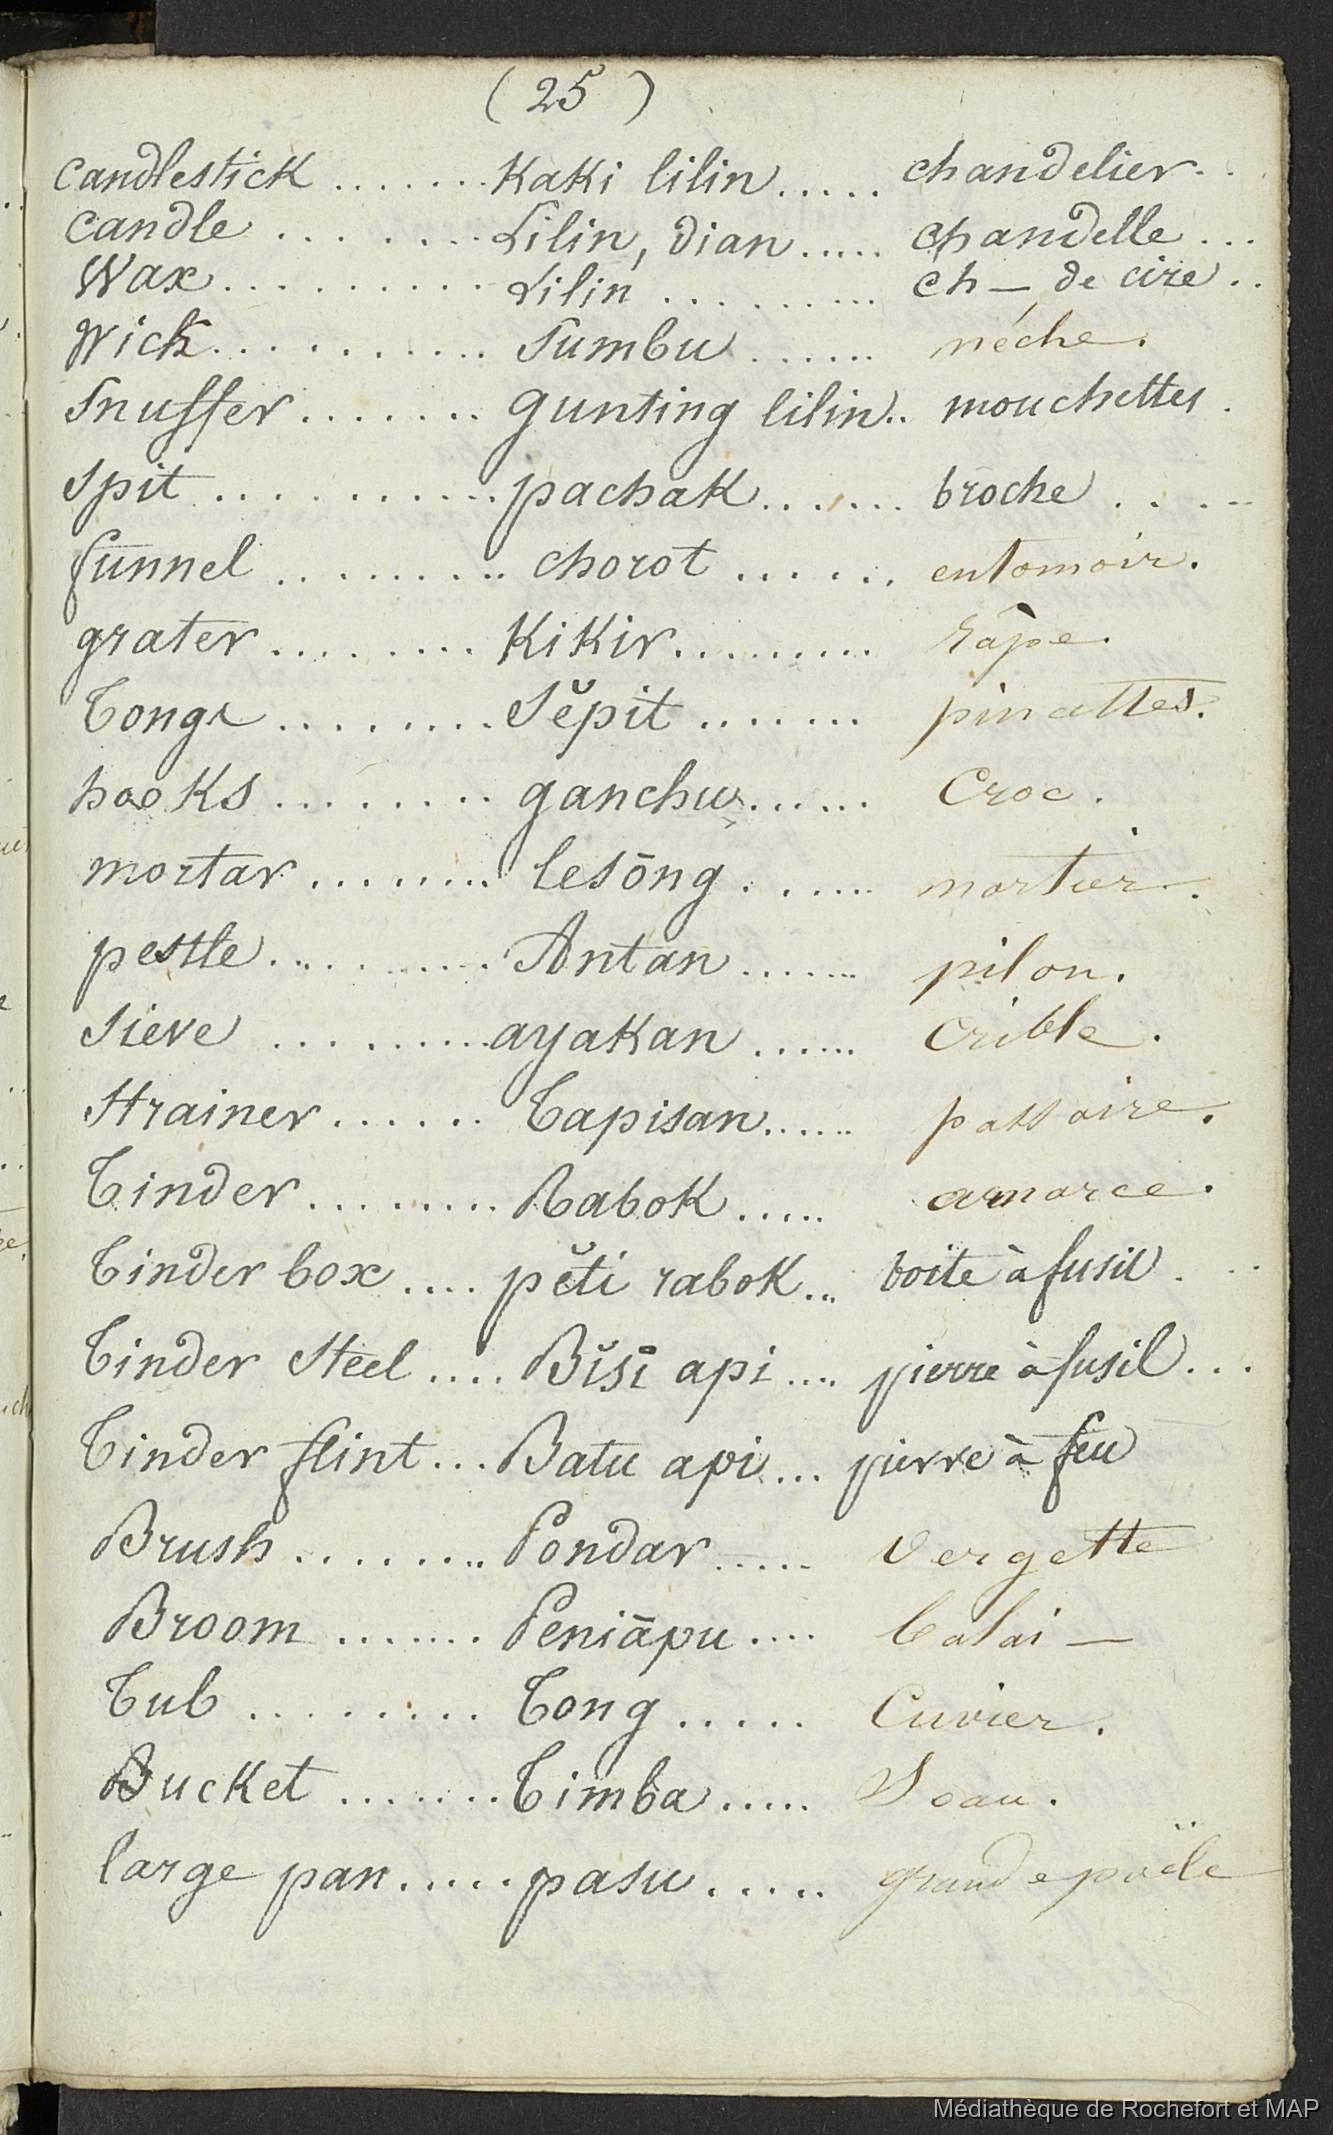 ( 25 )
candlestick ....... Kaki lilin ..... chandelier ..
candle ........ Lilin, dian ..... chandelle ...
Wax ......... Lilin .......... ch — de cire ..
Wick .......... Sumbu ...... méche .
Snuffer ....... gunting lilin .. mouchettes .
Spit .......... pachak ...... broche .....
funnel ......... chorot ...... entomoir .
grater ........ Kikir ......... râpe .
Tongs ........ Sĕpit ....... pincettes .
hooks ........ ganchu ...... Croc .
mortar ........ lesōng ...... mortier .
pestle .......... Antan ....... pilon .
Sieve ......... ayakan ...... Crible .
Strainer ...... Tapisan ..... passoire .
Tinder ........ Rabok ..... amorce .
Tinder box .... pĕti rabok ... boite à fusil ...
Tinder Steel .... Bĭsī api .... pierre à fusil ...
Tinder flint ... Batu api ... pierre à feu
Brush ........ Pondar ..... Vergette
Broom ....... Peniāpu .... balai —
Tub ........ Tong ..... Cuvier .
Bucket ....... Timba ..... Seau .
large pan ..... pasu ..... grande poële
Médiathèque de Rochefort et MAP